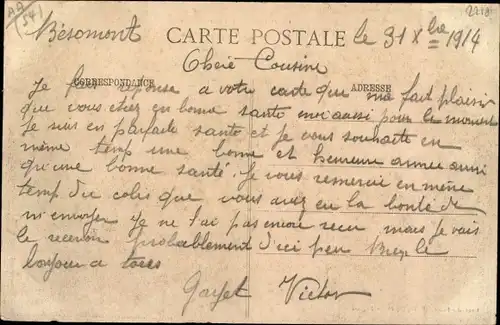 AA 54
Bésomont CARTE POSTALE le 31 Xbre 1914
Cheré Cousine
CORRESPONDANCE ADRESSE
Je fais reponse a votre carte que me fait plaisir
que vous etez en bonne santé moi aussi pour le moment
Je suis en parfaite santé et je vous souhaite en
même temp une bonne et heureuse année ausi
qu'une bonne santé. Je vous remerci en même
temp du colis que vous avez eu la bonté de
m'envoyer Je ne l'ai pas encore recu mais je vais
le recevoir probablement d'ici peu Bien le
bonjour a tous
Gayet Victor